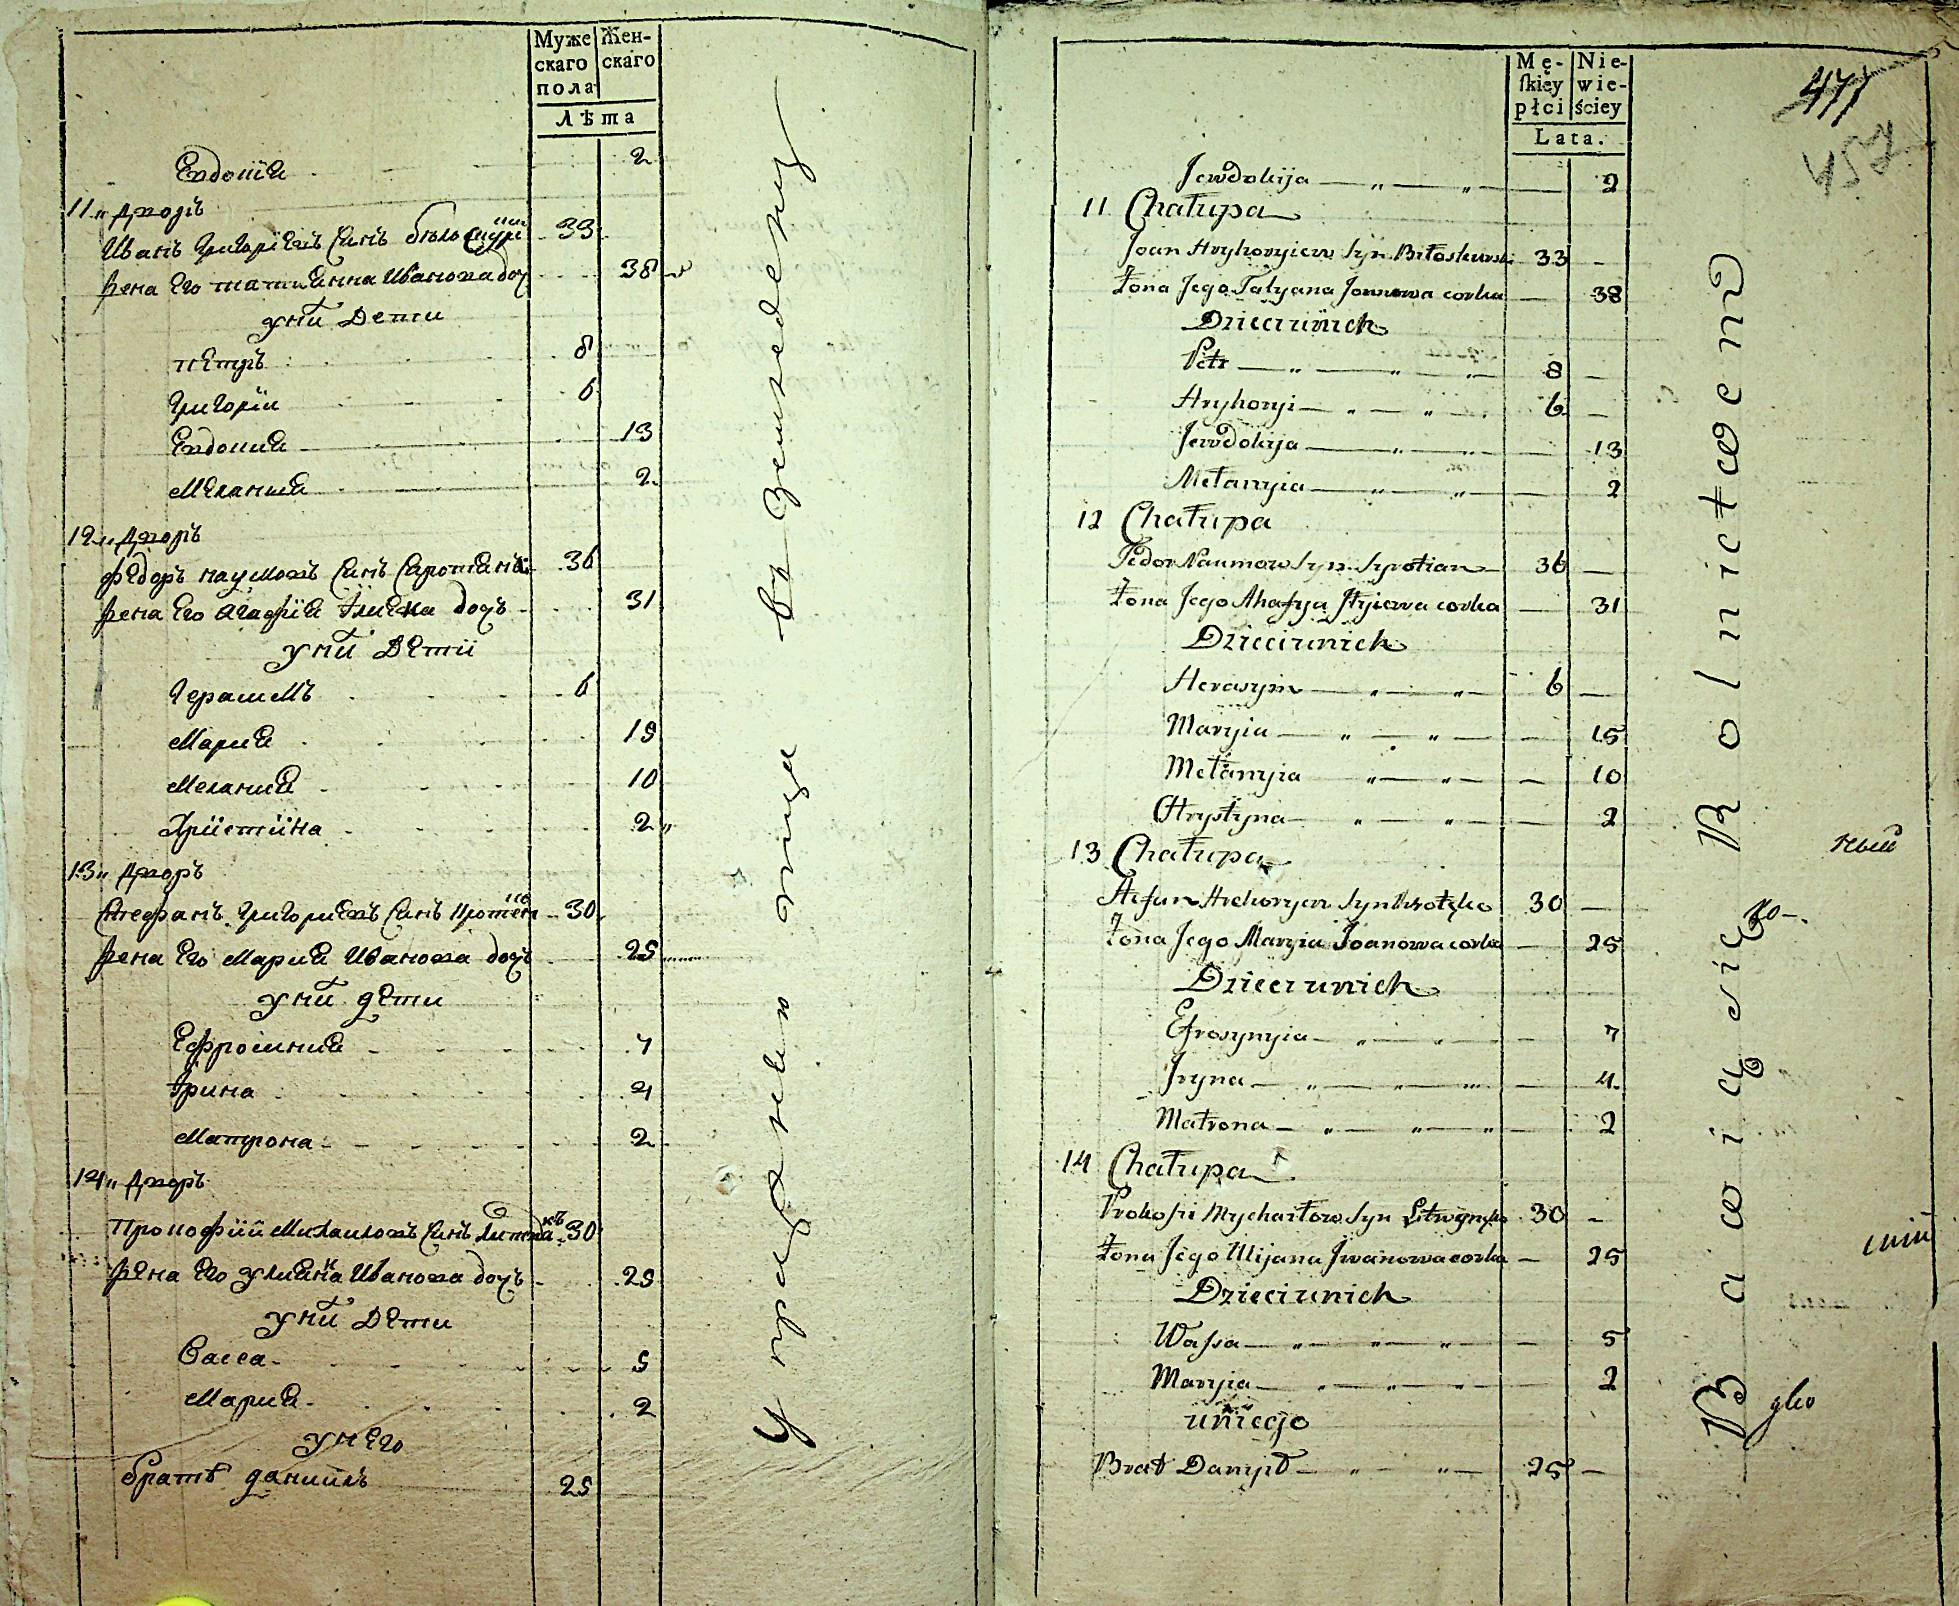 Муже скаго пола
Жен- скаго
Лѣта
Евдокія 2
11 „ Дворъ
Иванъ Григоріевъ Синъ Бѣлоскурскій 33
Жена Его татиянна Иванова доч 38
у ни дети
петръ 8
Григорій 6
Евдокия 13
Мелания 2
12 „ Дворъ
Федоръ наумовъ Синъ Сиротянъ 36
Жена Его Агафія Ілиева доч 31
у ни дети
Герасимъ 6
Мария 15
Мелания 10
Христіна 2
13 „ Дворъ
Стефанъ Григориевъ Синъ 30
Жена Его Мария Иванова доч 25
у ни дети
Ефросиния 7
Ірина 4
Матрона 2
14 „ Дворъ
Прокофий Михаиловъ Синъ 30
Жена Его Улияна Иванова доч 25
у ни дети
Васса 5
Мария 2
у него
братъ данийлъ 25
Mę- ſkiey płci
Nie- wie- ściey
Lata.
471
457
Jewdokija 2
11 Chałupa
Joan Hryhoryiew Syn Biłoskurski 33
Żona Jego Tatyana Joanowa corka 38
Dzieci u nich
Petr 8
Hryhoryi 6
Jewdokija 13
Mełanyia 2
12 Chałupa
Fedor Naumow Syn Syrotian 36
Żona Jego Ahafya Jłyiewa corka 31
Dzieci u nich
Herasym 6
Maryia 15
Mełanyia 10
Chrystyna 2
13 Chałupa
Stefan Hrehoryew Syn 30
Żona Jego Maryia Joanowa corka 25
Dzieci u nich
Efrosynyia 7
Jryna 4
Matrona 2
14 Chałupa
Prokofii Mychaiłow Syn 30
Żona Jego Ulijana Jwanowa corka 25
Dzieci u nich
Wassa 5
Maryia 2
u niego
Brat Danyił 25
Bawiąsię Rolnictwem